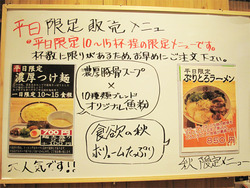 平日限定販売メニュー
*平日限定10~15杯程の限定メニューです。
杯数に限りがあるため、お早めにご注文下さい。
平日限定
濃厚つけ麺
一日限定10~15食
700円
濃厚豚骨スープ
×
10種類ブレンド
オリジナル魚粉
食欲の秋
ボリュームたっぷり
平日限定
ぶりとろラーメン
950円
大人気です!!
秋限定メニュー